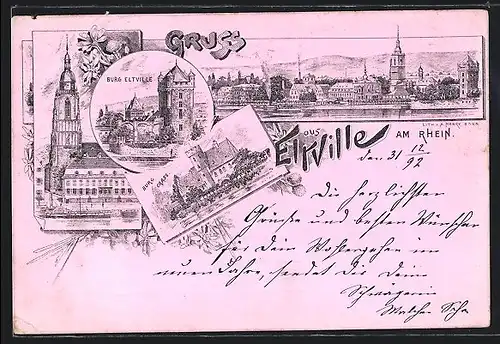 GRUSS
BURG ELTVILLE
aus
ELTVILLE
AM RHEIN.
BURG CRASS
den 31 12/92
Die herzlichsten
Grüsse und besten Wünsche
für Dein Wohlergehen im
neuen Jahre, sendet die Dein
Schwägerin